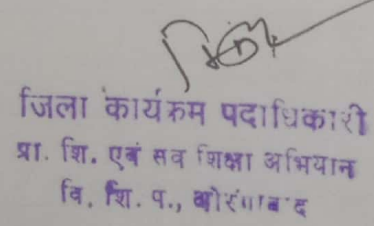 जिला कार्यक्रम पदाधिकारी
प्रा. शि. एवं सर्व शिक्षा अभियान
वि. शि. प., औरंगाबाद